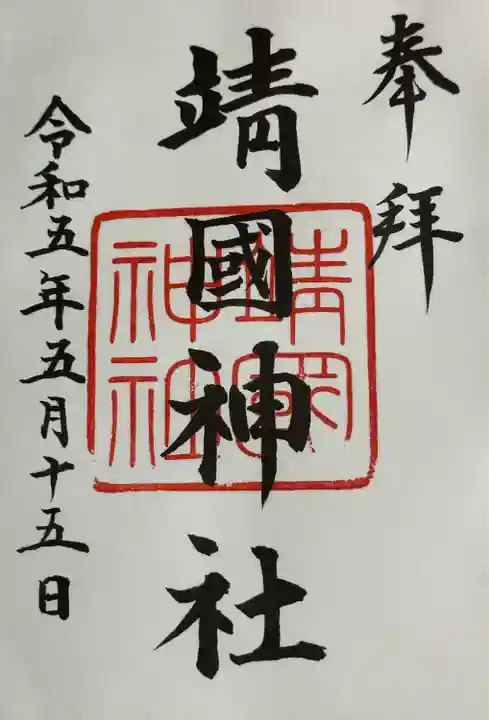 奉拝
靖國神社
靖國神社
令和五年五月十五日